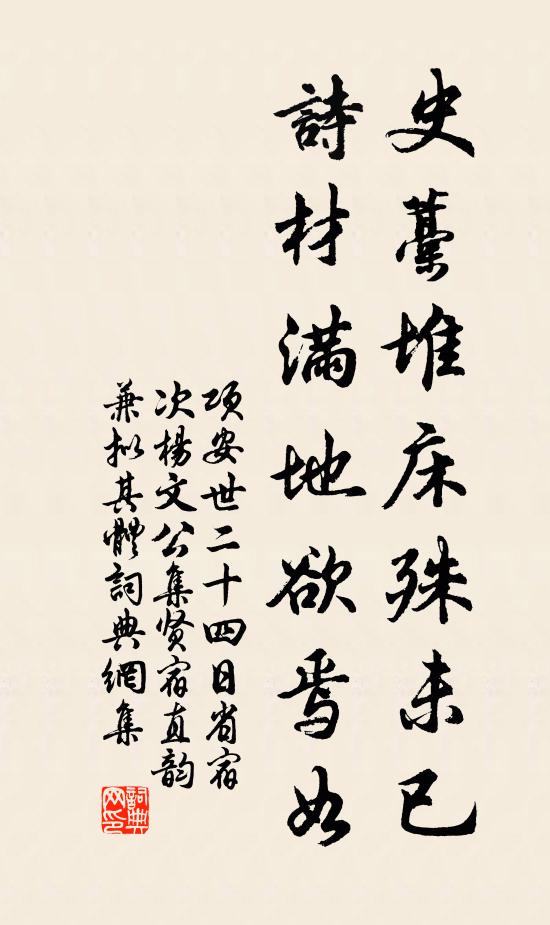 史藁堆床殊未已
詩材滿地欲焉如
項安世二十四日省宿
次楊文公集贤宿直韵
兼拟其體詞典網集
詞典网印